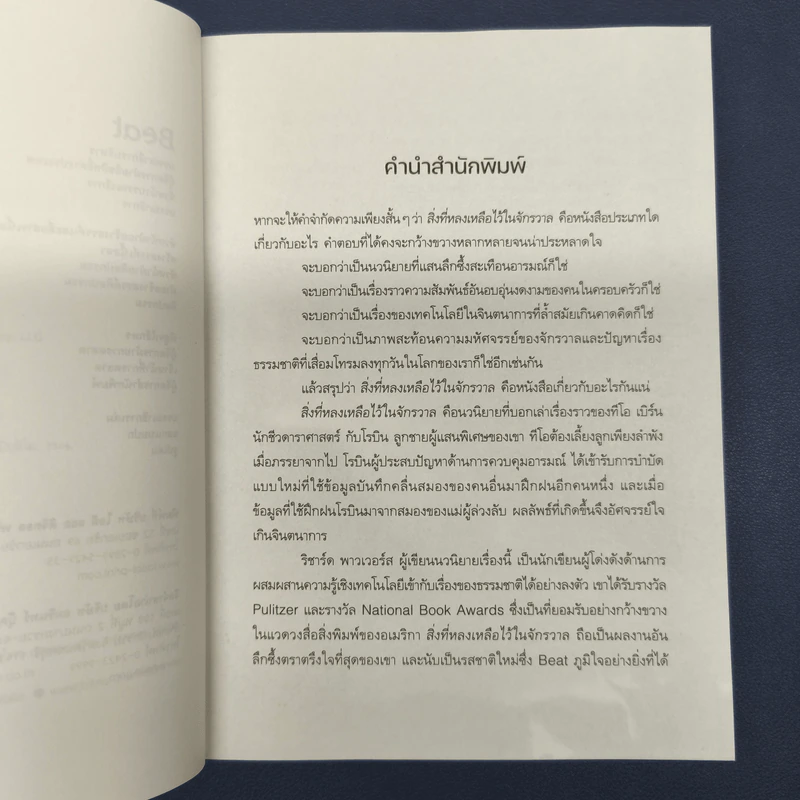 คำนำสำนักพิมพ์
หากจะให้คำจำกัดความเพียงสั้นๆ ว่า สิ่งที่หลงเหลือไว้ในจักรวาล คือหนังสือประเภทใด
เกี่ยวกับอะไร คำตอบที่ได้คงจะกว้างขวางหลากหลายจนน่าประหลาดใจ
จะบอกว่าเป็นนวนิยายที่แสนลึกซึ้งสะเทือนอารมณ์ก็ใช่
จะบอกว่าเป็นเรื่องราวความสัมพันธ์อันอบอุ่นงดงามของคนในครอบครัวก็ใช่
จะบอกว่าเป็นเรื่องของเทคโนโลยีในจินตนาการที่ล้ำสมัยเกินคาดคิดก็ใช่
จะบอกว่าเป็นภาพสะท้อนความมหัศจรรย์ของจักรวาลและปัญหาเรื่อง
ธรรมชาติที่เสื่อมโทรมลงทุกวันในโลกของเราก็ใช่อีกเช่นกัน
แล้วสรุปว่า สิ่งที่หลงเหลือไว้ในจักรวาล คือหนังสือเกี่ยวกับอะไรกันแน่
สิ่งที่หลงเหลือไว้ในจักรวาล คือนวนิยายที่บอกเล่าเรื่องราวของทีโอ เบิร์น
นักชีวดาราศาสตร์ กับโรบิน ลูกชายผู้แสนพิเศษของเขา ทีโอต้องเลี้ยงลูกเพียงลำพัง
เมื่อภรรยาจากไป โรบินผู้ประสบปัญหาด้านการควบคุมอารมณ์ ได้เข้ารับการบำบัด
แบบใหม่ที่ใช้ข้อมูลบันทึกคลื่นสมองของคนอื่นมาฝึกฝนอีกคนหนึ่ง และเมื่อ
ข้อมูลที่ใช้ฝึกฝนโรบินมาจากสมองของแม่ผู้ล่วงลับ ผลลัพธ์ที่เกิดขึ้นจึงอัศจรรย์ใจ
เกินจินตนาการ
ริชาร์ด พาวเวอร์ส ผู้เขียนนวนิยายเรื่องนี้ เป็นนักเขียนผู้โด่งดังด้านการ
ผสมผสานความรู้เชิงเทคโนโลยีเข้ากับเรื่องของธรรมชาติได้อย่างลงตัว เขาได้รับรางวัล
Pulitzer และรางวัล National Book Awards ซึ่งเป็นที่ยอมรับอย่างกว้างขวาง
ในแวดวงสื่อสิ่งพิมพ์ของอเมริกา สิ่งที่หลงเหลือไว้ในจักรวาล ถือเป็นผลงานอัน
ลึกซึ้งตราตรึงใจที่สุดของเขา และนับเป็นรสชาติใหม่ซึ่ง Beat ภูมิใจอย่างยิ่งที่ได้